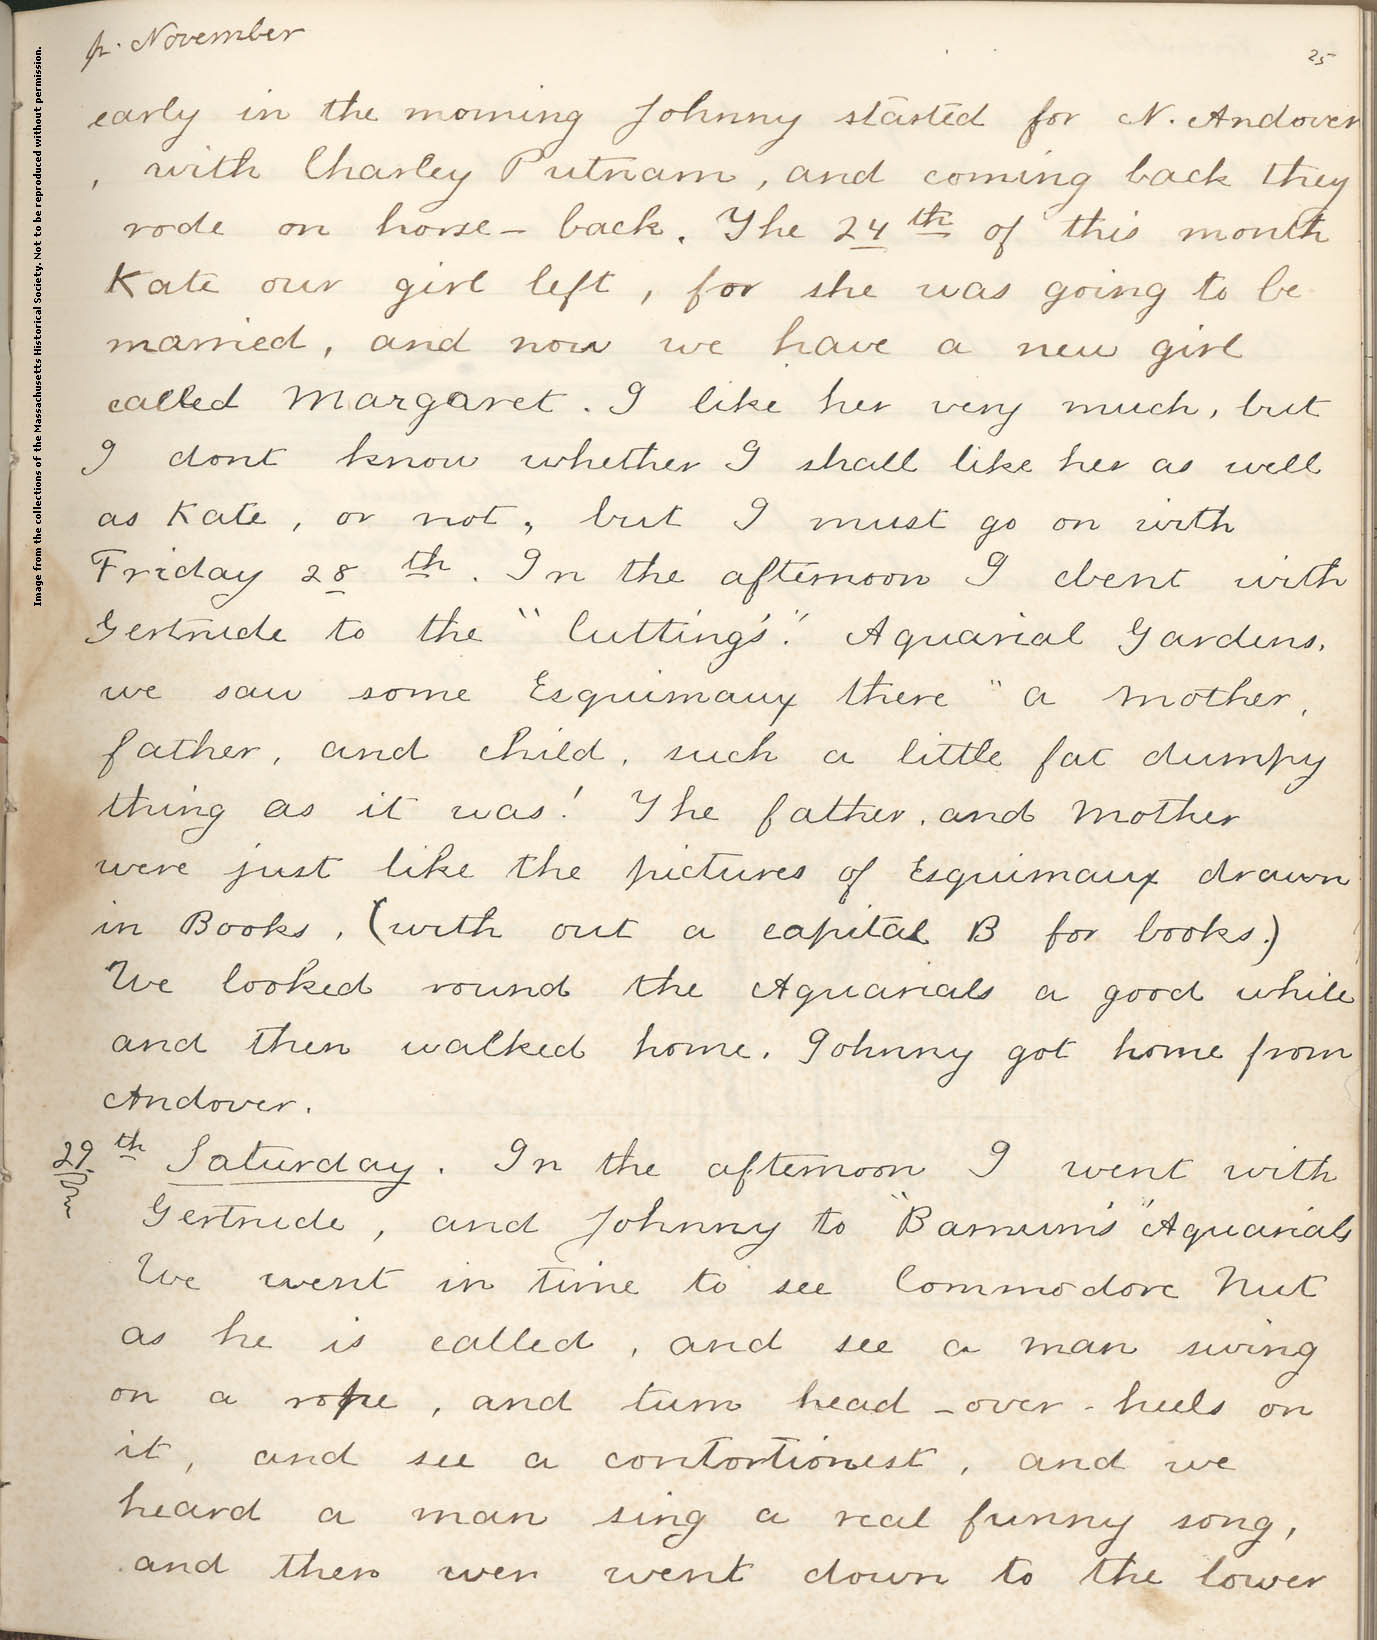 Image from the collections of the Massachusetts Historical Society. Not to be reproduced without permission.
November
25
early in the morning Johnny started for N. Andover
, with Charley Putnam, and coming back they
rode on horse-back. The 24th of this month
Kate our girl left, for she was going to be
married, and now we have a new girl
called Margaret. I like her very much, but
I dont know whether I shall like her as well
as Kate, or not, but I must go on with
Friday 28th. In the afternoon I went with
Gertrude to the "Cutting's." Aquarial Gardens.
we saw some Esquimaux there " a mother,
father, and child, such a little fat dumpy
thing as it was! The father, and mother
were just like the pictures of Esquimaux drawn
in Books, (with out a capital B for books.)
We looked round the Aquarials a good while
and then walked home. Johnny got home from
Andover.
29th Saturday. In the afternoon I went with
Gertrude, and Johnny to "Barnum's" Aquarials
We went in time to see Commodore Nut
as he is called, and see a man swing
on a rope, and turn head-over-heels on
it, and see a contortionest, and we
heard a man sing a real funny song,
and then wen went down to the lower